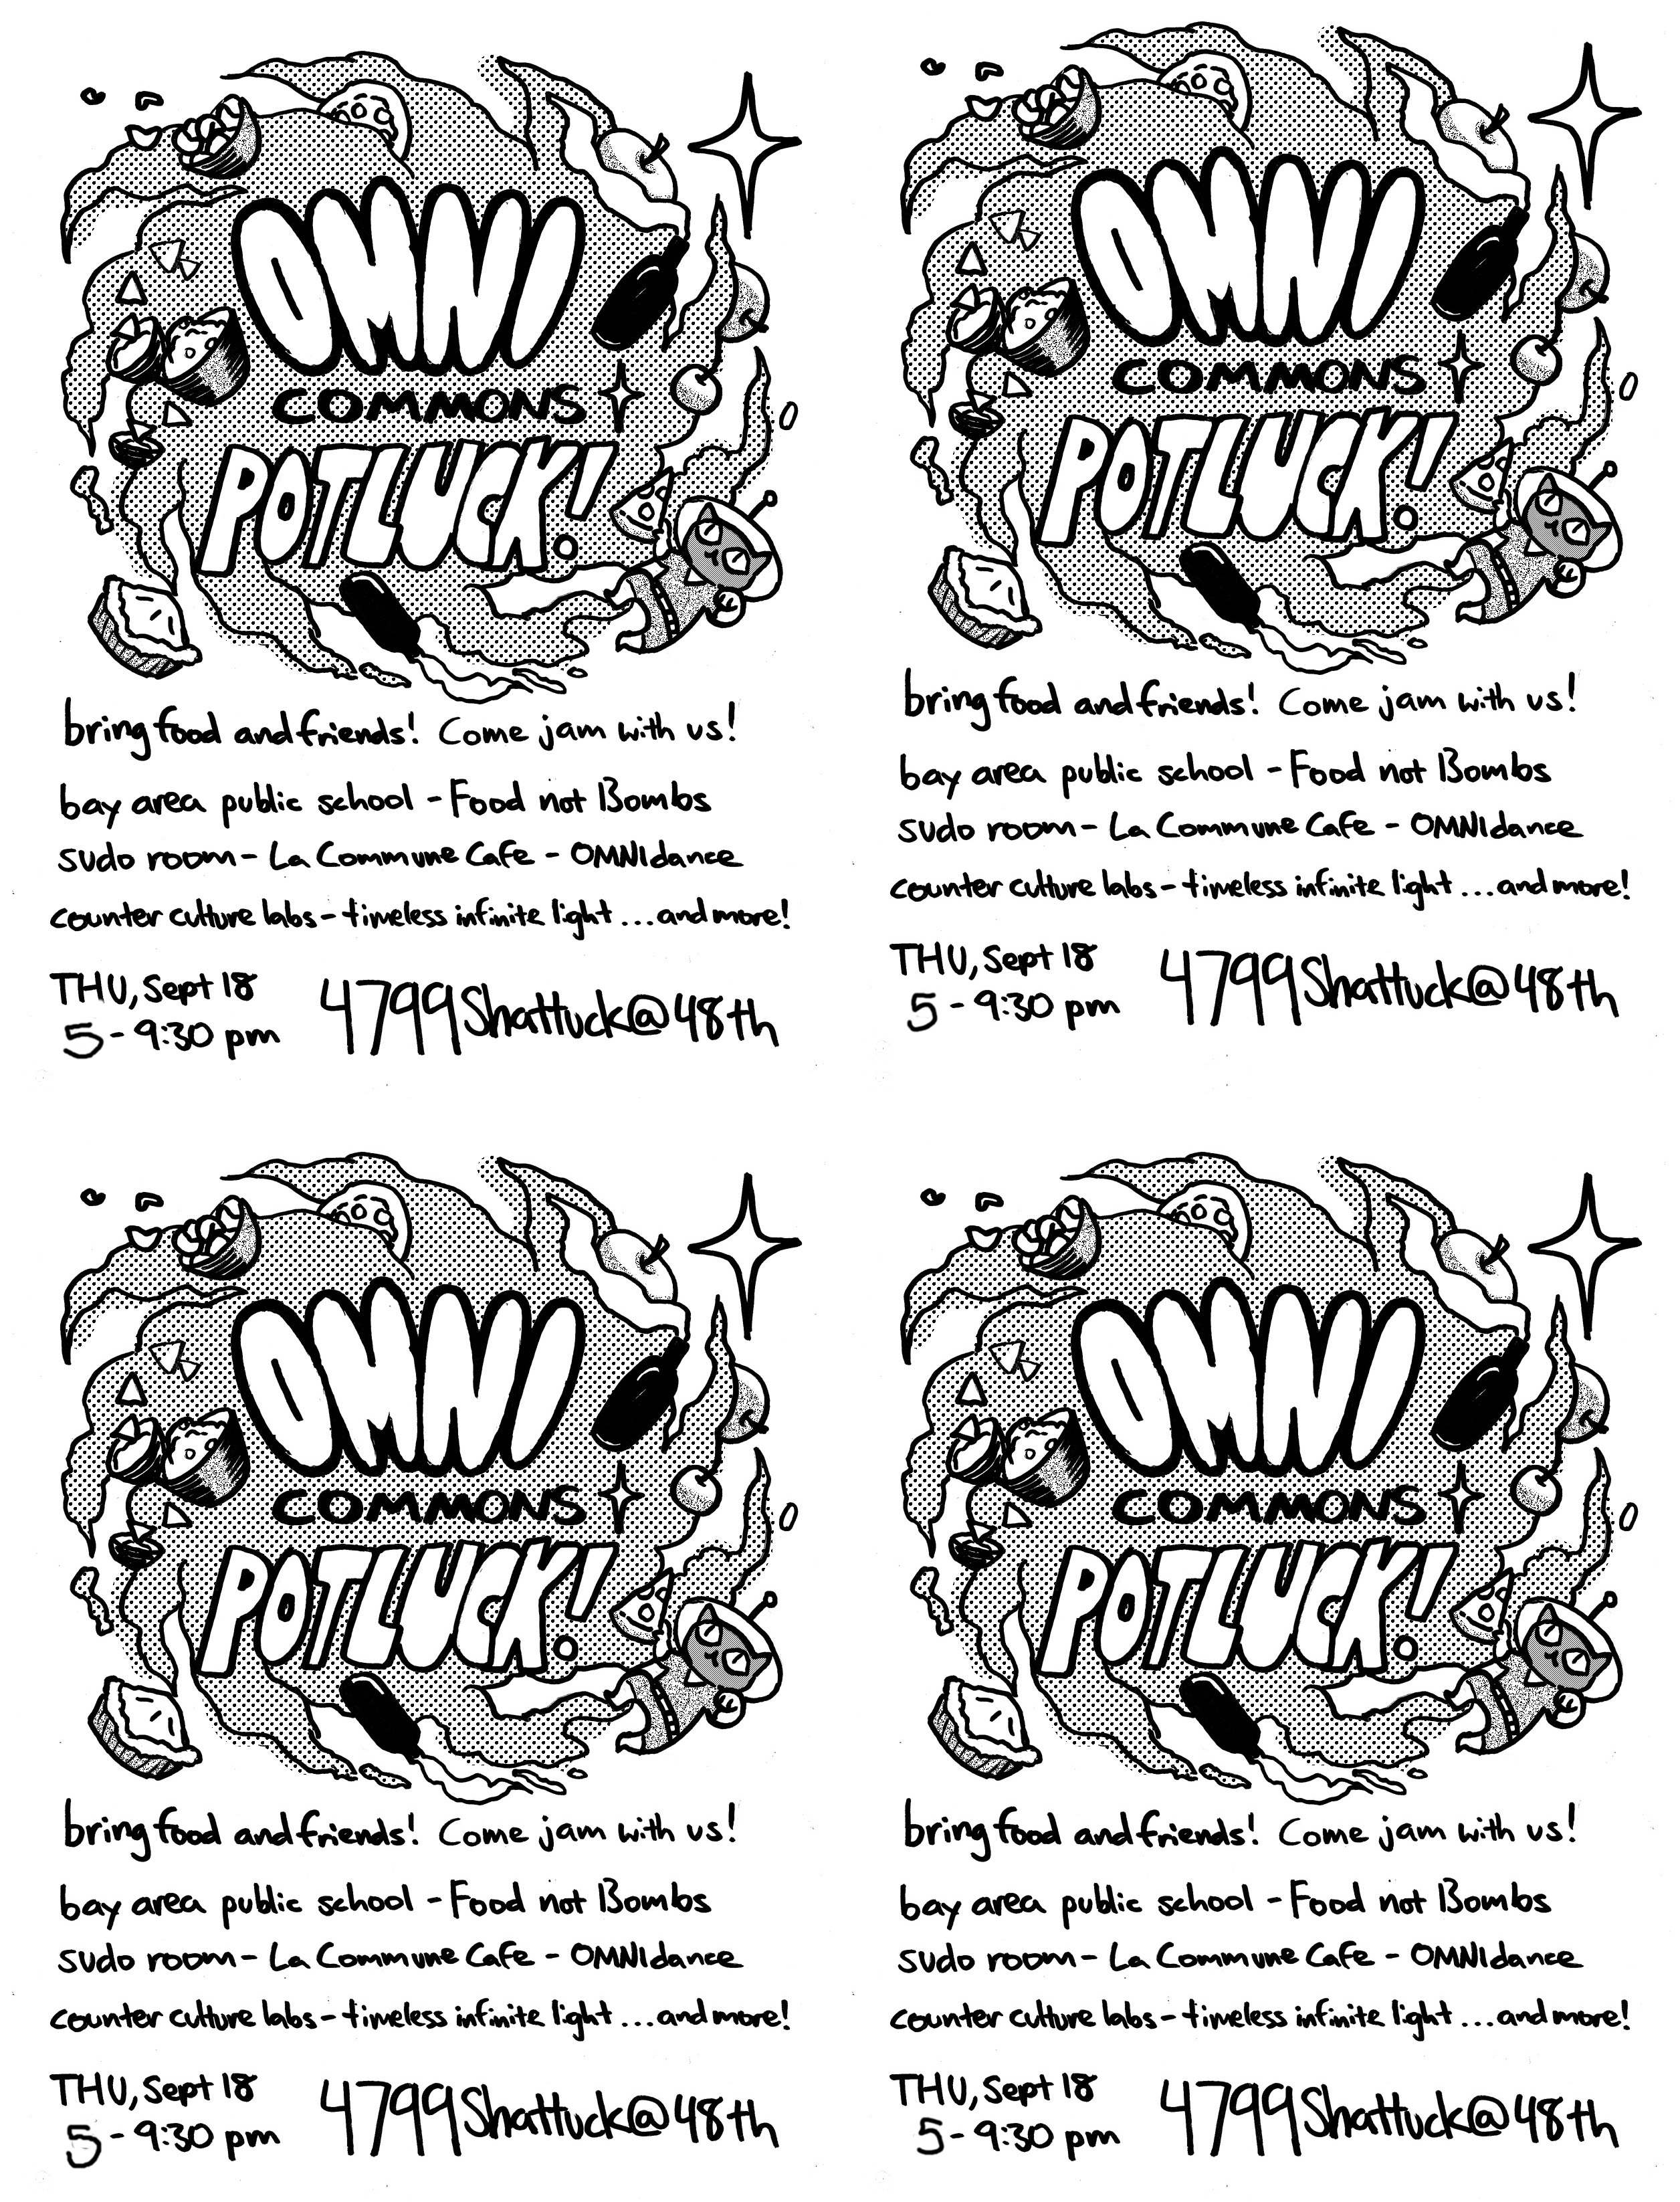 OMNI
COMMONS
POTLUCK!
bring food and friends! Come jam with us!
bay area public school - Food not Bombs
sudo room - La Commune Cafe - OMNIdance
counter culture labs - timeless infinite light ... and more!
THU, Sept 18
5 - 9:30 pm
4799 Shattuck @ 48th
OMNI
COMMONS
POTLUCK!
bring food and friends! Come jam with us!
bay area public school - Food not Bombs
sudo room - La Commune Cafe - OMNIdance
counter culture labs - timeless infinite light ... and more!
THU, Sept 18
5 - 9:30 pm
4799 Shattuck @ 48th
OMNI
COMMONS
POTLUCK!
bring food and friends! Come jam with us!
bay area public school - Food not Bombs
sudo room - La Commune Cafe - OMNIdance
counter culture labs - timeless infinite light ... and more!
THU, Sept 18
5 - 9:30 pm
4799 Shattuck @ 48th
OMNI
COMMONS
POTLUCK!
bring food and friends! Come jam with us!
bay area public school - Food not Bombs
sudo room - La Commune Cafe - OMNIdance
counter culture labs - timeless infinite light ... and more!
THU, Sept 18
5 - 9:30 pm
4799 Shattuck @ 48th